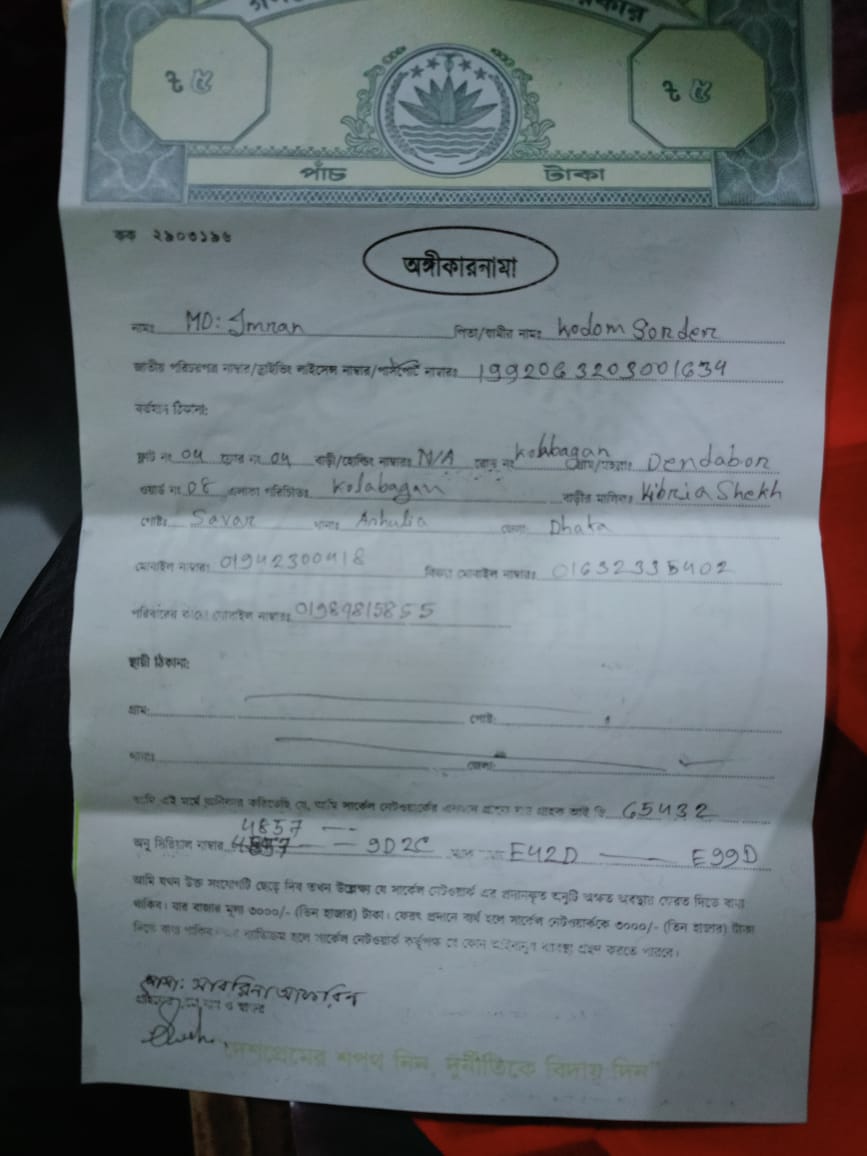 ৳ ৫ ৳ ৫
পাঁচ টাকা
কক ২৯০৩১৯৬
অঙ্গীকারনামা
নামঃ MD: Imran পিতা/স্বামীর নামঃ kodom Sorder
জাতীয় পরিচয়পত্র নাম্বার/ড্রাইভিং লাইসেন্স নাম্বার/পাসপোর্ট নাম্বারঃ 1992063203001634
বর্তমান ঠিকানা:
ফ্লাট নং 04 ফ্লোর নং 04 বাড়ী/হোল্ডিং নাম্বারঃ N/A রোড নং kolabagan গ্রাম/মহল্লাঃ Dendabor
ওয়ার্ড নং 08 এলাকা পরিচিতঃ kolabagan বাড়ীর মালিকঃ kibria Shekh
পোষ্টঃ Savar থানাঃ Ashulia জেলা: Dhaka
মোবাইল নাম্বারঃ 01942300418 বিকল্প মোবাইল নাম্বারঃ
পরিবারের কারো মোবাইল নাম্বারঃ 01989815855
স্থায়ী ঠিকানা:
গ্রাম: পোষ্ট:
থানাঃ জেলা:
আমি এই মর্মে অঙ্গিকার করিতেছি যে, আমি সার্কেল নেটওয়ার্কের 65432
4857
অনু সিরিয়াল নাম্বার 9D2C E42D E99D
আমি যখন উক্ত সংযোগটি ছেড়ে দিব তখন উল্লেখ্য যে সার্কেল নেটওয়ার্ক এর প্রদানকৃত অনুটি অক্ষত অবস্থায় ফেরত দিতে বাধ্য
থাকিব। যার বাজার মূল্য ৩০০০/- (তিন হাজার) টাকা। ফেরৎ প্রদানে ব্যর্থ হলে সার্কেল নেটওয়ার্ককে ৩০০০/- (তিন হাজার) টাকা
দিতে বাধ্য থাকিব হলে সার্কেল নেটওয়ার্ক কর্তৃপক্ষ যে কোন আইনানুগ ব্যবস্থা গ্রহণ করতে পারবে।
সাবরিনা আফরিন
দেশপ্রেমের শপথ নিন, দুর্নীতিকে বিদায় দিন